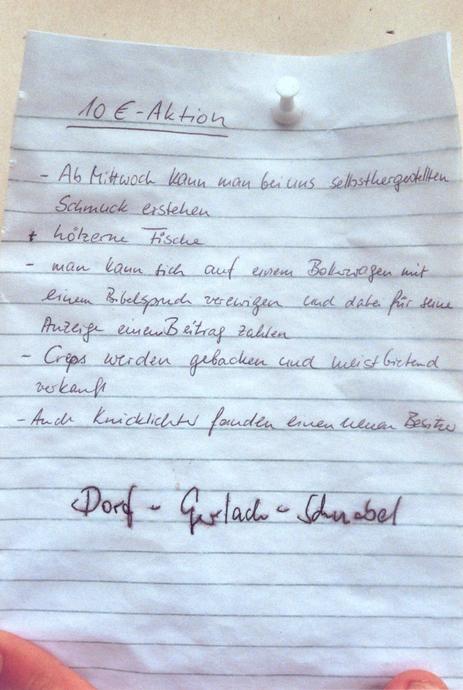 10 €-Aktion
- Ab Mittwoch kann man bei uns selbsthergestellten
Schmuck erstehen
+ hölzerne Fische
- man kann sich auf einem Bollerwagen mit
einem Bibelspruch verewigen und dabei für seine
Anzeige einen Beitrag zahlen
- Crêps werden gebacken und meistbietend
verkauft
- Auch Knicklichter fanden einen neuen Besitzer
Dorf - Gerlach - Schnabel